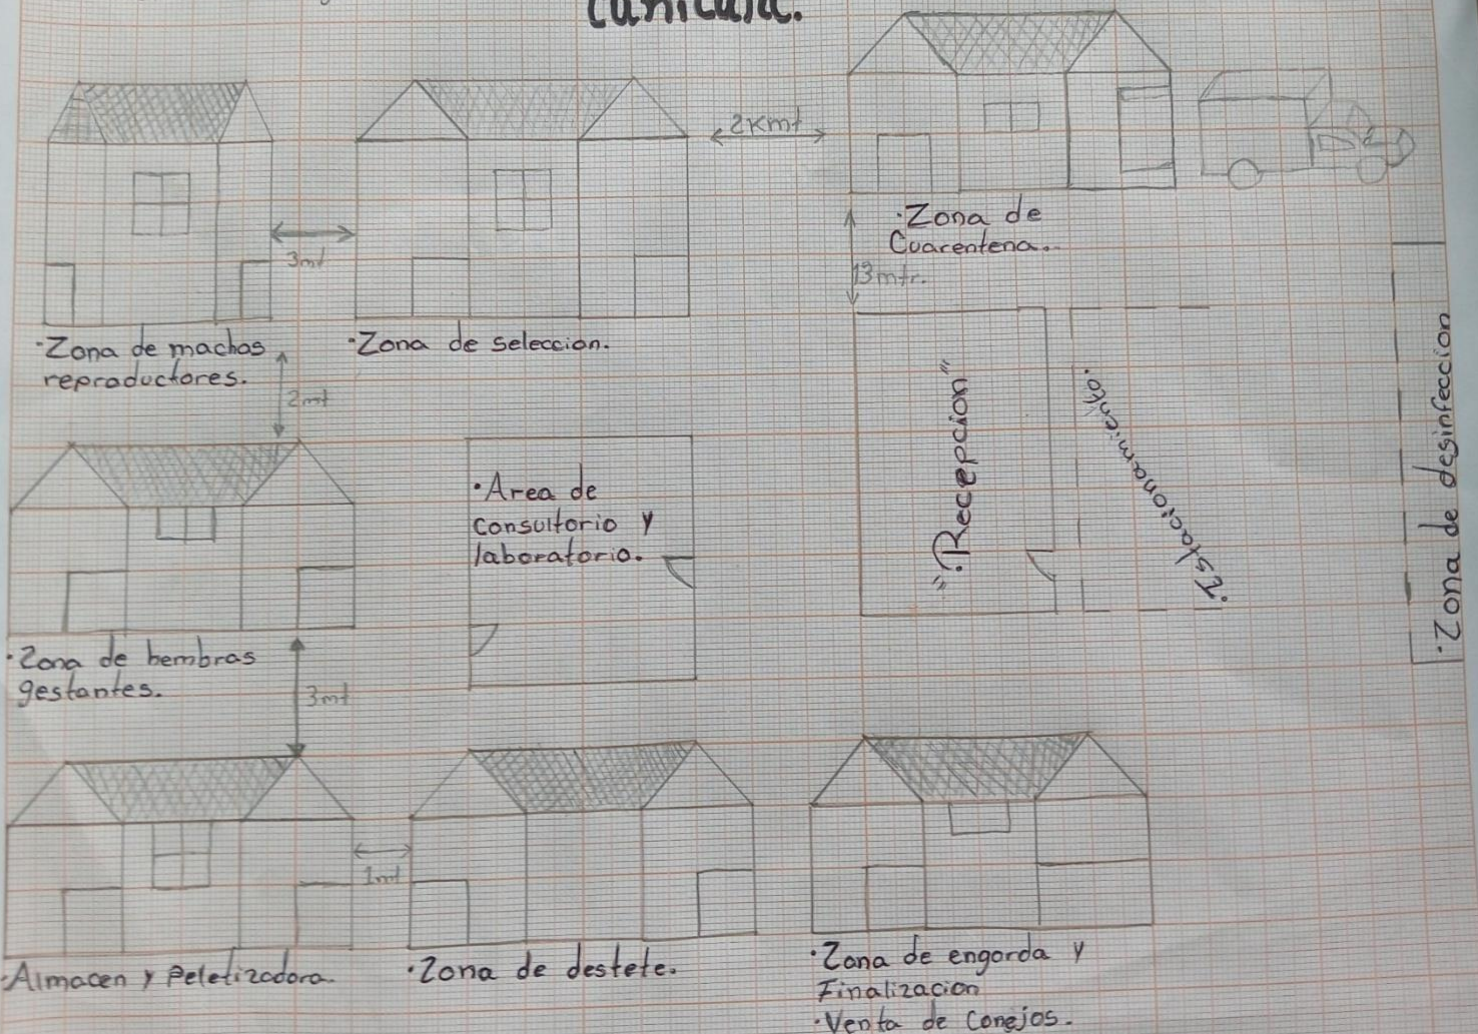 cunicula.
2Kmt
·Zona de
Cuarentena..
3mt
3mtr.
·Zona de machos
reproductores.
·Zona de seleccion.
2mt
·Area de
consultorio y
laboratorio.
".Recepcion"
·Estacionamiento.
·Zona de desinfeccion
·Zona de hembras
gestantes.
3mt
1mt
·Almacen y Peletizadora.
·Zona de destete.
·Zona de engorda y
Finalizacion
·Venta de conejos.